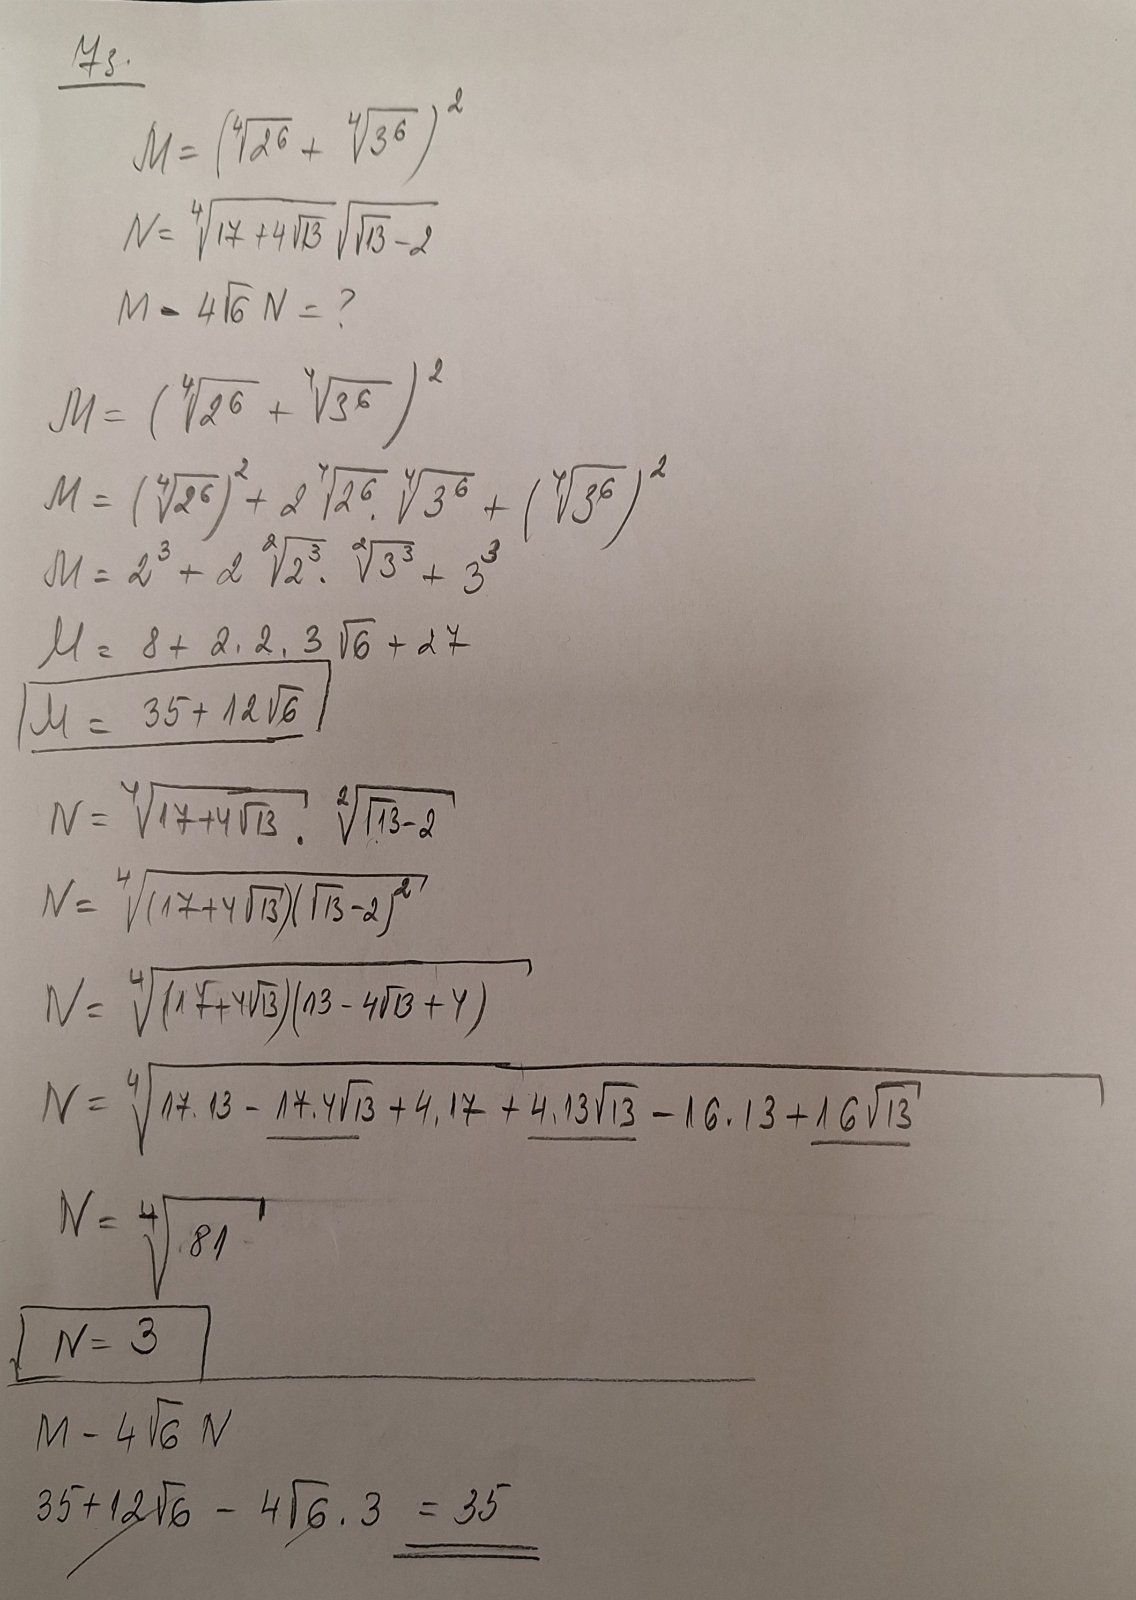 73.
M = (∜2⁶ + ∜3⁶)²
N = ∜(17+4√13) √(√13-2)
M - 4√6 N = ?
M = (∜2⁶ + ∜3⁶)²
M = (∜2⁶)² + 2 ∜2⁶ . ∜3⁶ + (∜3⁶)²
M = 2³ + 2 ²√2³ . ²√3³ + 3³
M = 8 + 2.2.3 √6 + 27
M = 35 + 12√6
N = ∜(17+4√13) . ²√(√13-2)
N = ∜((17+4√13)(√13-2)²)
N = ∜((17+4√13)(13-4√13+4))
N = ∜(17.13 - 17.4√13 + 4.17 + 4.13√13 - 16.13 + 16√13)
N = ∜81
N = 3
M - 4√6 N
35+12√6 - 4√6 . 3 = 35